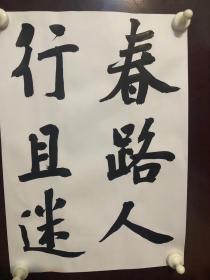 春路人
行且迷